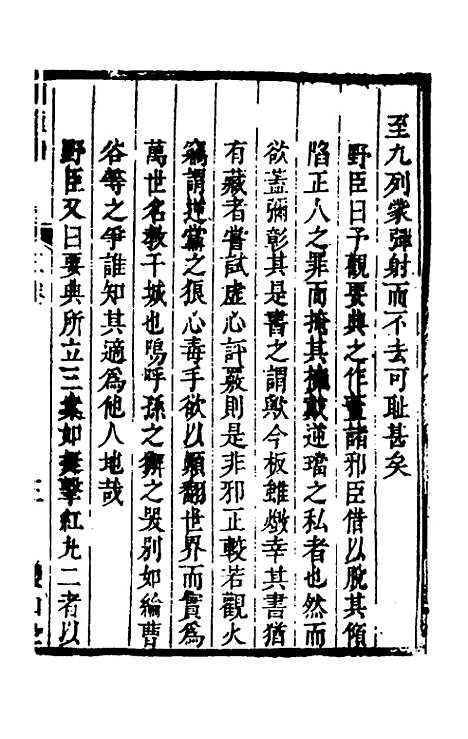 至九列蒙彈射而不去可耻甚矣
野臣曰予觀要典之作蓋諸邪臣借以脫其傾
陷正人之罪而掩其擁戴逆璫之私者也然而
欲盖彌彰其是書之謂歟今板雖燬幸其書猶
有藏者嘗試虛心評覈則是非邪正較若觀火
竊謂逆黨之狠心毒手欲以顛翻世界而實為
萬世名教干城也嗚呼孫之獬之哭別如綸曹
谷等之爭誰知其適為他人地哉
野臣又曰要典所立三案如梃擊紅丸二者以